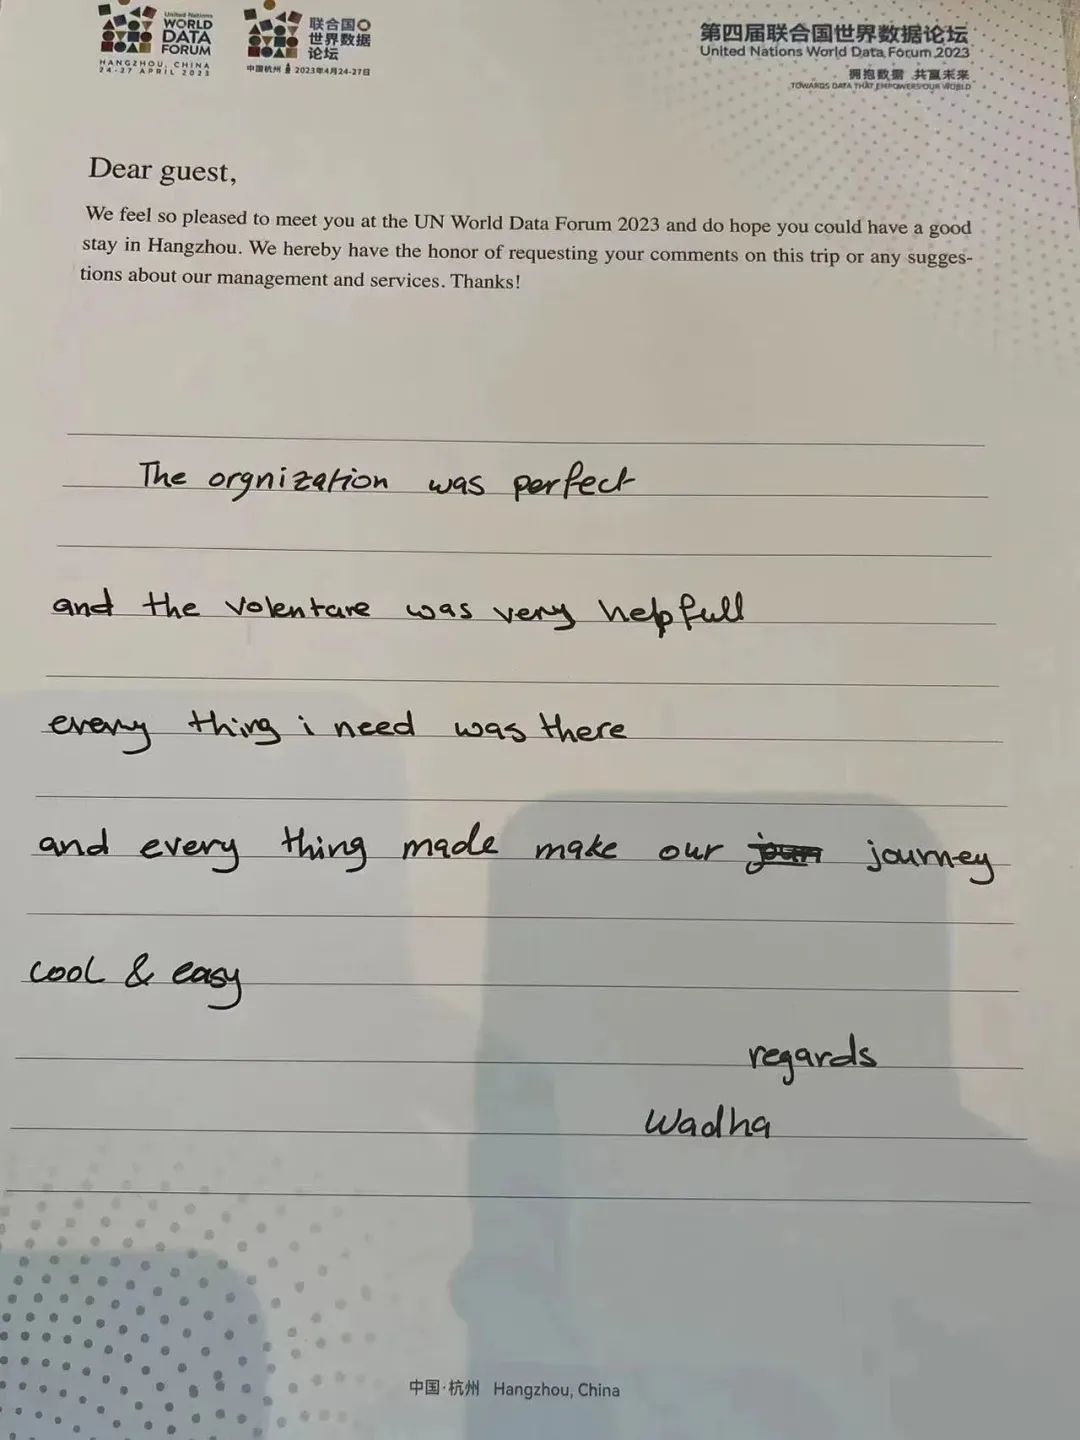 United Nations
WORLD
DATA
FORUM
HANGZHOU, CHINA
24-27 APRIL 2023
联合国
世界数据
论坛
中国杭州 2023年4月24-27日
第四届联合国世界数据论坛
United Nations World Data Forum 2023
拥抱数据 共赢未来
TOWARDS DATA THAT EMPOWERS OUR WORLD
Dear guest,
We feel so pleased to meet you at the UN World Data Forum 2023 and do hope you could have a good
stay in Hangzhou. We hereby have the honor of requesting your comments on this trip or any sugges-
tions about our management and services. Thanks!
The orgnization was perfect
and the volentare was very helpfull
every thing i need was there
and every thing made make our journey
cool & easy
regards
Wadha
中国·杭州 Hangzhou, China